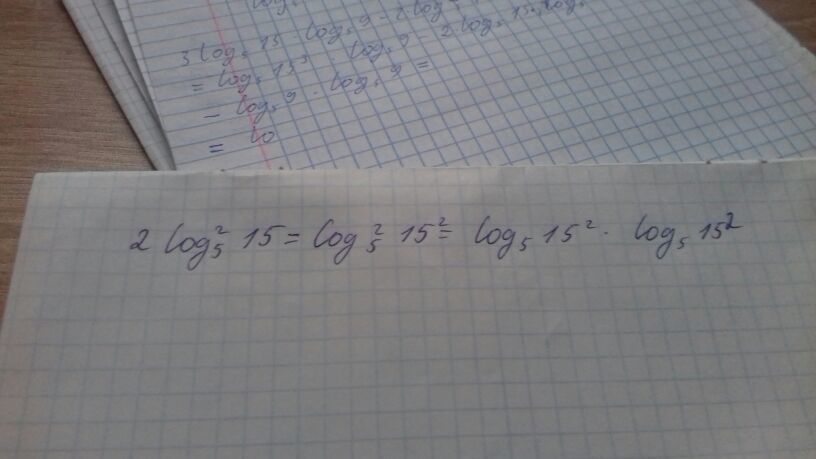 3 log₅ 15 · log₅ 9 - 2 log
= log₅ 15³ · log₅ 9 - 2 log₅ 15 · log₅
- log₅ 9 · log₅ 9 =
= lo
2 log₅² 15 = log₅² 15² = log₅ 15² · log₅ 15²